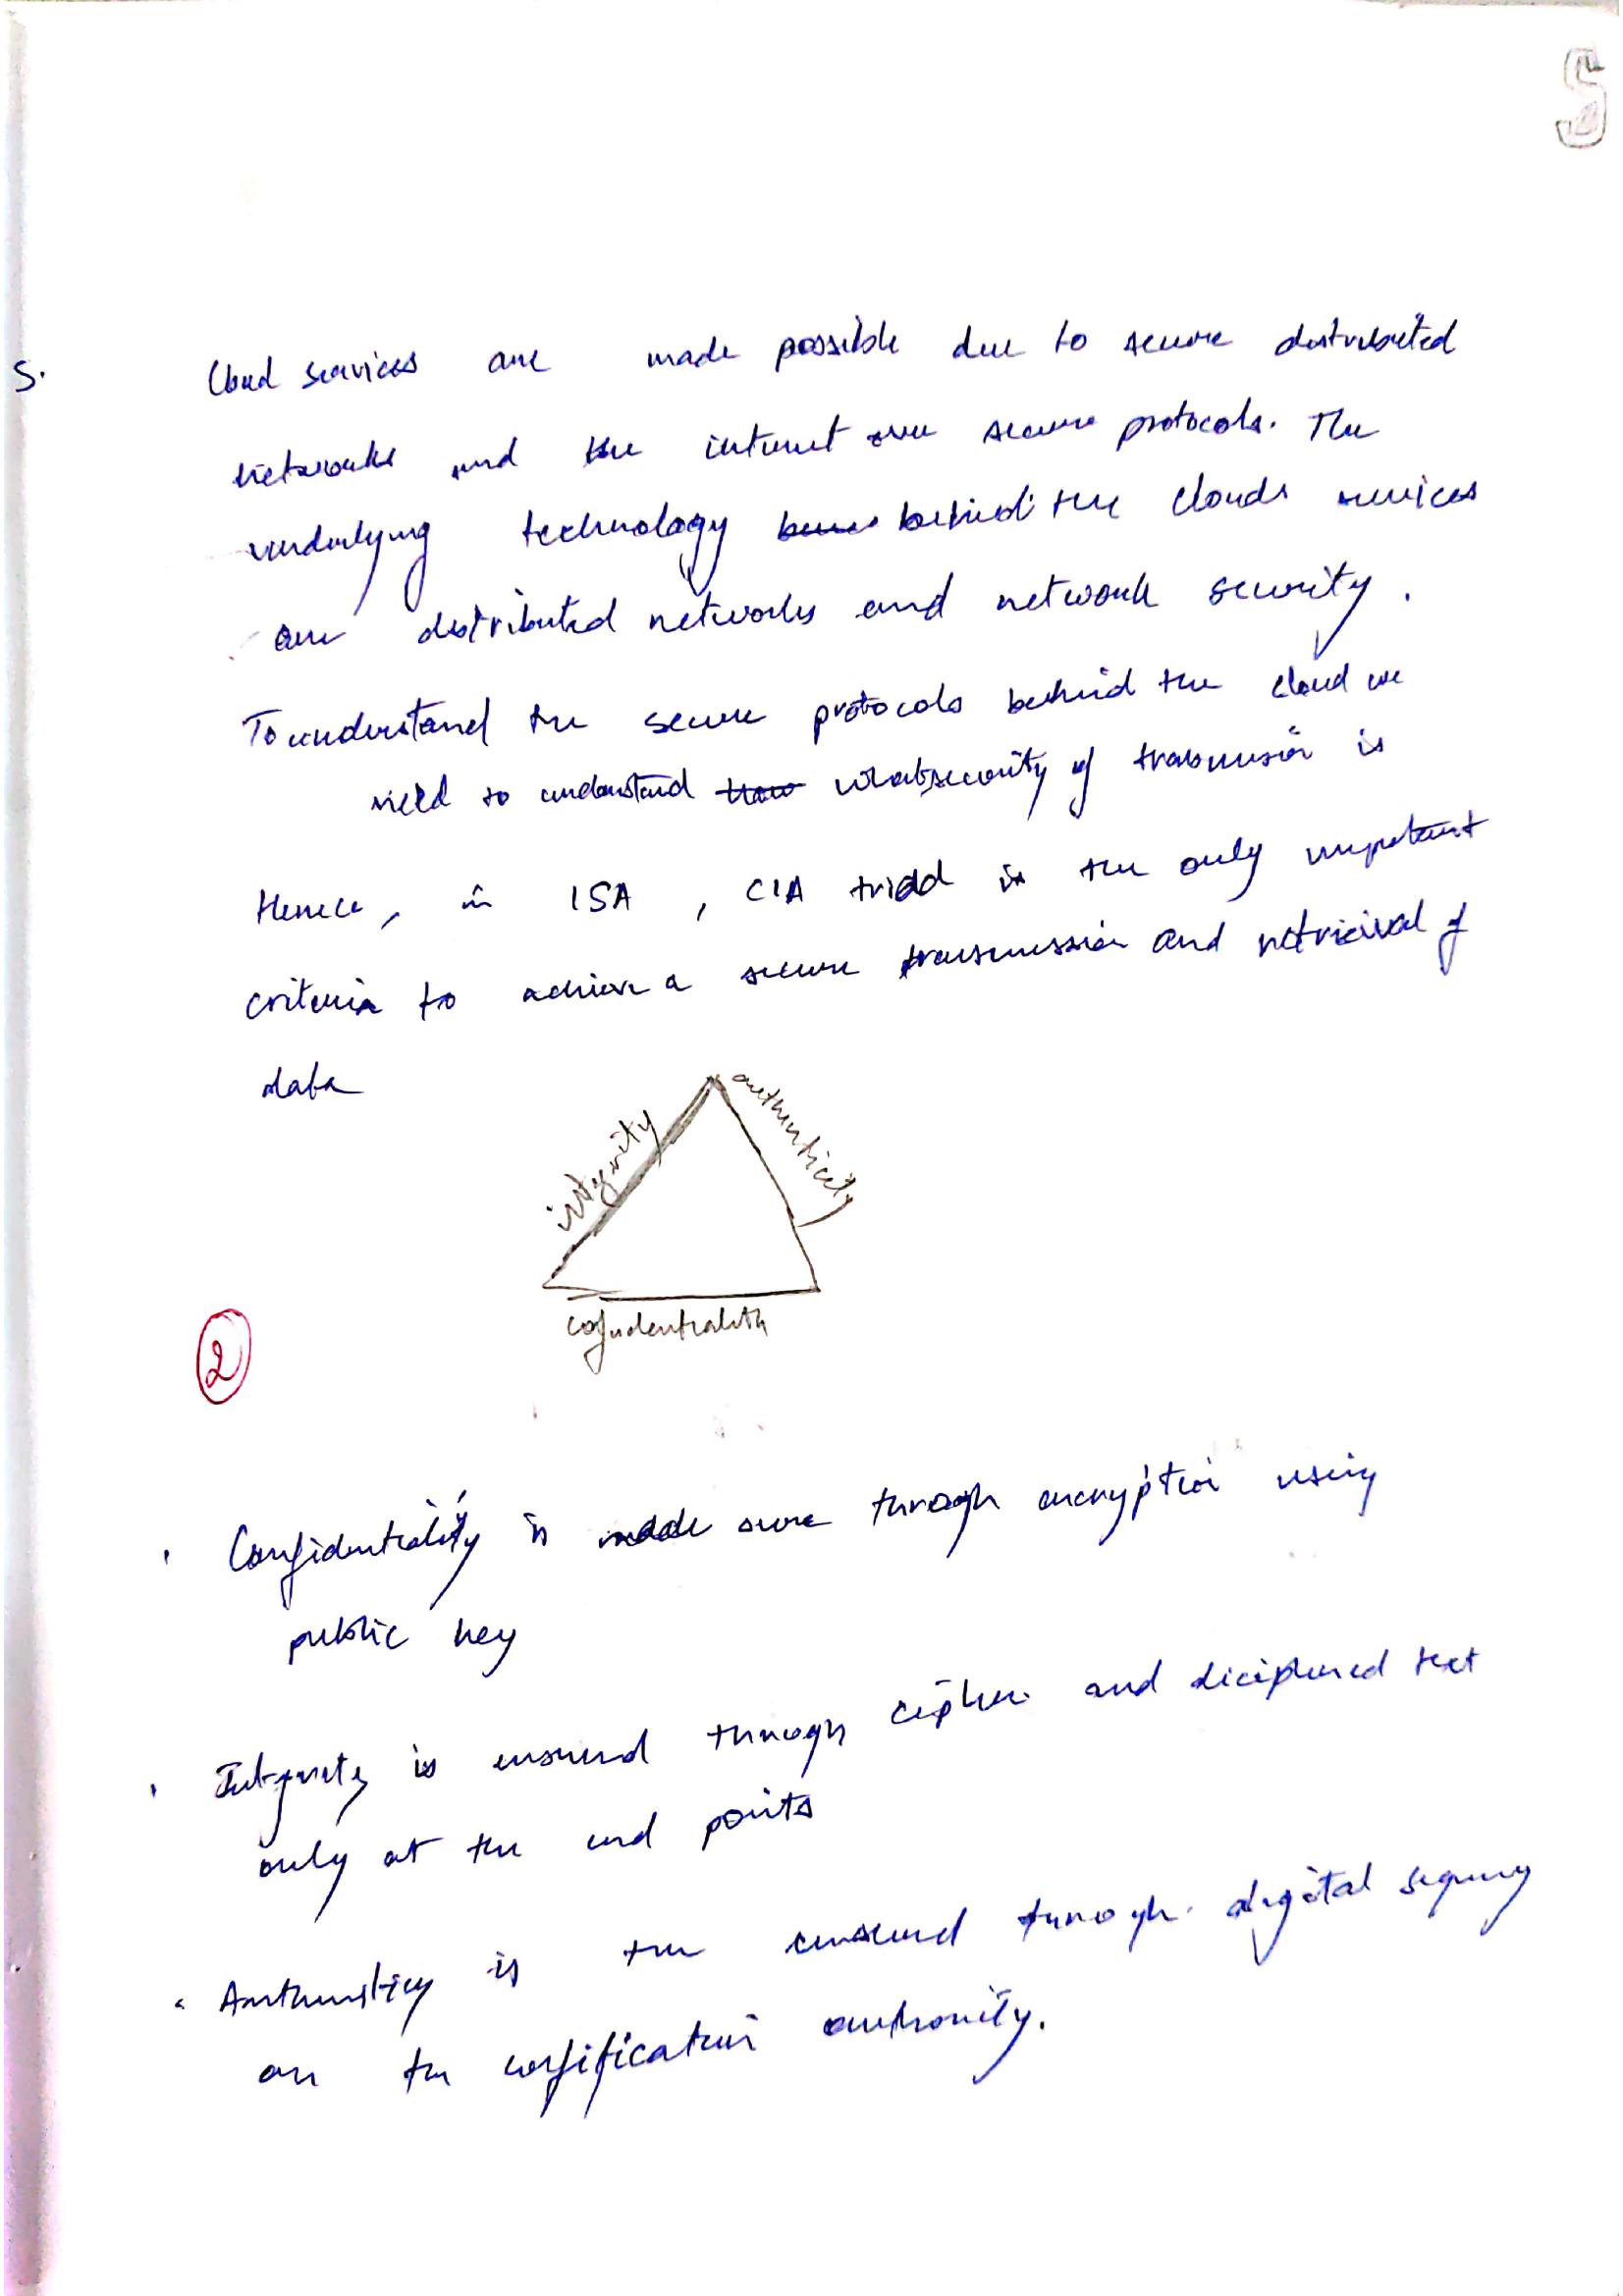 5
5. Cloud services are made possible due to secure distributed
networks and the internet over secure protocols. The
underlying technology behind the clouds services
are distributed networks and network security.
To understand the secure protocols behind the cloud we
need to understand what security of transmission is
Hence, in ISA, CIA triad is the only important
criteria to achieve a secure transmission and retrieival of
data
integrity
authenticity
confidentiality
2
Confidentiality is made sure through encryption using
public key
Integrity is ensured through cipher and deciphered text
only at the end points
Authenticity is the ensured through digital
on the authority.